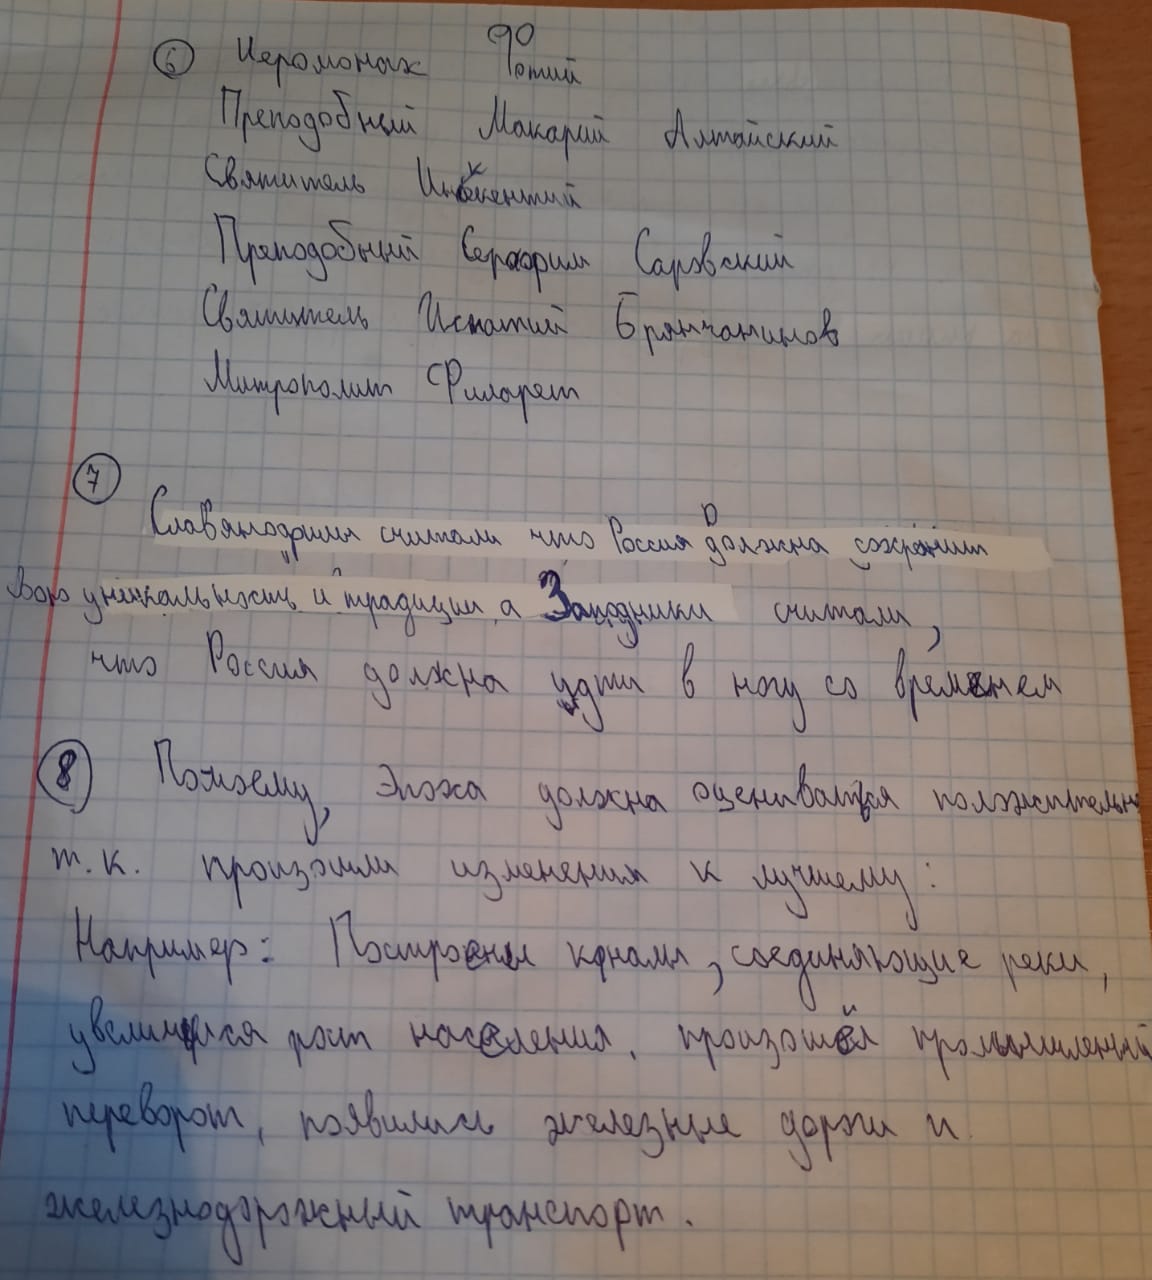 6 Иеромонах Фотий
Преподобный Макарий Алтайский
Святитель Инокентий
Преподобный Серафим Саровский
Святитель Игнатий Брянчанинов
Митрополит Филарет
7
Славянофилы считали что Россия должна сохранить
свою уникальность и традиции, а Западники считали,
что Россия должна идти в ногу со временем
8 Помоему, эпоха должна оцениваться положительно
т.к. произошли изменения к лучшему:
Например: Построены каналы, соединяющие реки,
увеличился рост населения, произошёл промышленный
переворот, появились железные дороги и
железнодорожный транспорт.